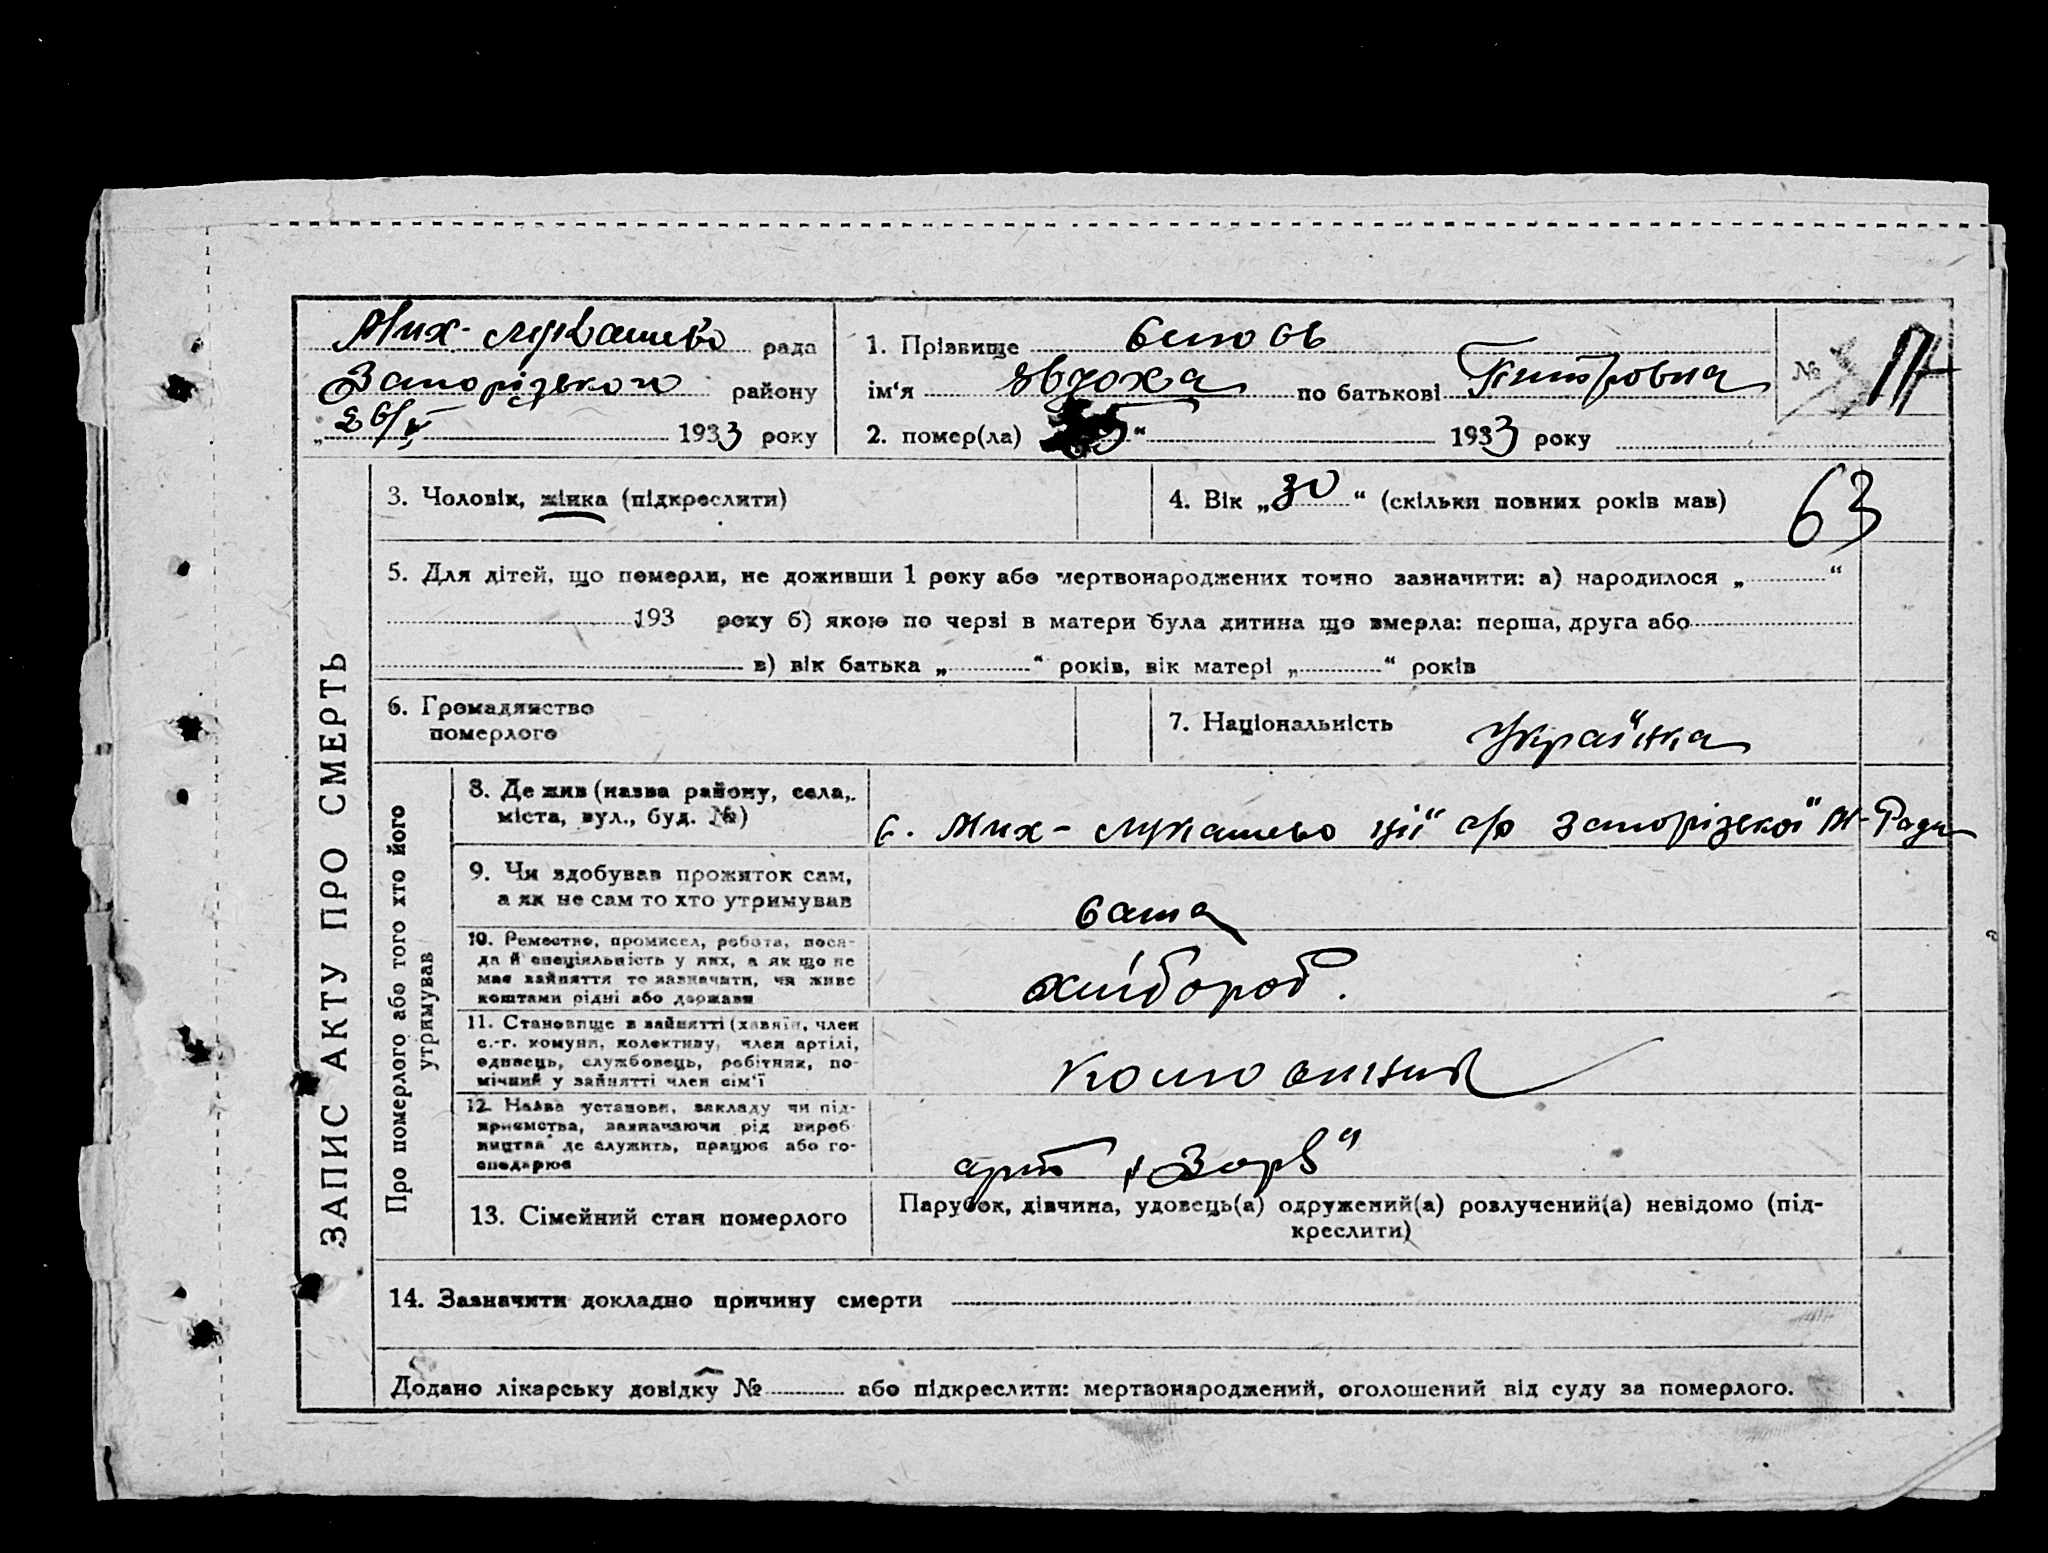 Мих-Лукашево рада
Запорізького району
„26/V 1933 року
1. Прізвище
ім‘я Явдоха по батькові Пилтровна
2. помер(ла) “ 1933 року
№ 17
ЗАПИС АКТУ ПРО СМЕРТЬ
3. Чоловік, жінка (підкреслити)
4. Вік „30“ (скільки повних років мав)
63
5. Для дітей, що померли, не доживши 1 року або мертвонароджених точно зазначити: а) народилося „ “
193 року б) якою по черзі в матери була дитина що вмерла: перша, друга або
в) вік батька „ “ років, вік матері „ “ років
6. Громадянство
померлого
7. Національність Українка
Про померлого або того хто його
утримував
8. Де жив (назва району, села,
міста, вул., буд. №)
с. Мих-Лукашево ції с/р Запорізької М-Ради
9. Чи здобував прожиток сам,
а як не сам то хто утримував
сама
10. Ремество, промисел, робота, поса-
да й спеціяльність у них, а як що не
має зайняття то зазначити, чи живе
коштами рідні або держави
хлібороб.
11. Становище в зайнятті (хазяїн, член
с.-г. комуни, колективу, член артілі,
одинець, службовець, робітник, по-
мічний у зайнятті член сім‘ї
12. Назва установи, закладу чи під-
приємства, зазначаючи рід вироб-
ництва де служить, працює або го-
сподарює
арт „Заря“
13. Сімейний стан померлого
Парубок, дівчина, удовець(а) одружений(а) розлучений(а) невідомо (під-
креслити)
14. Зазначити докладно причину смерти
Додано лікарську довідку № або підкреслити: мертвонароджений, оголошений від суду за померлого.